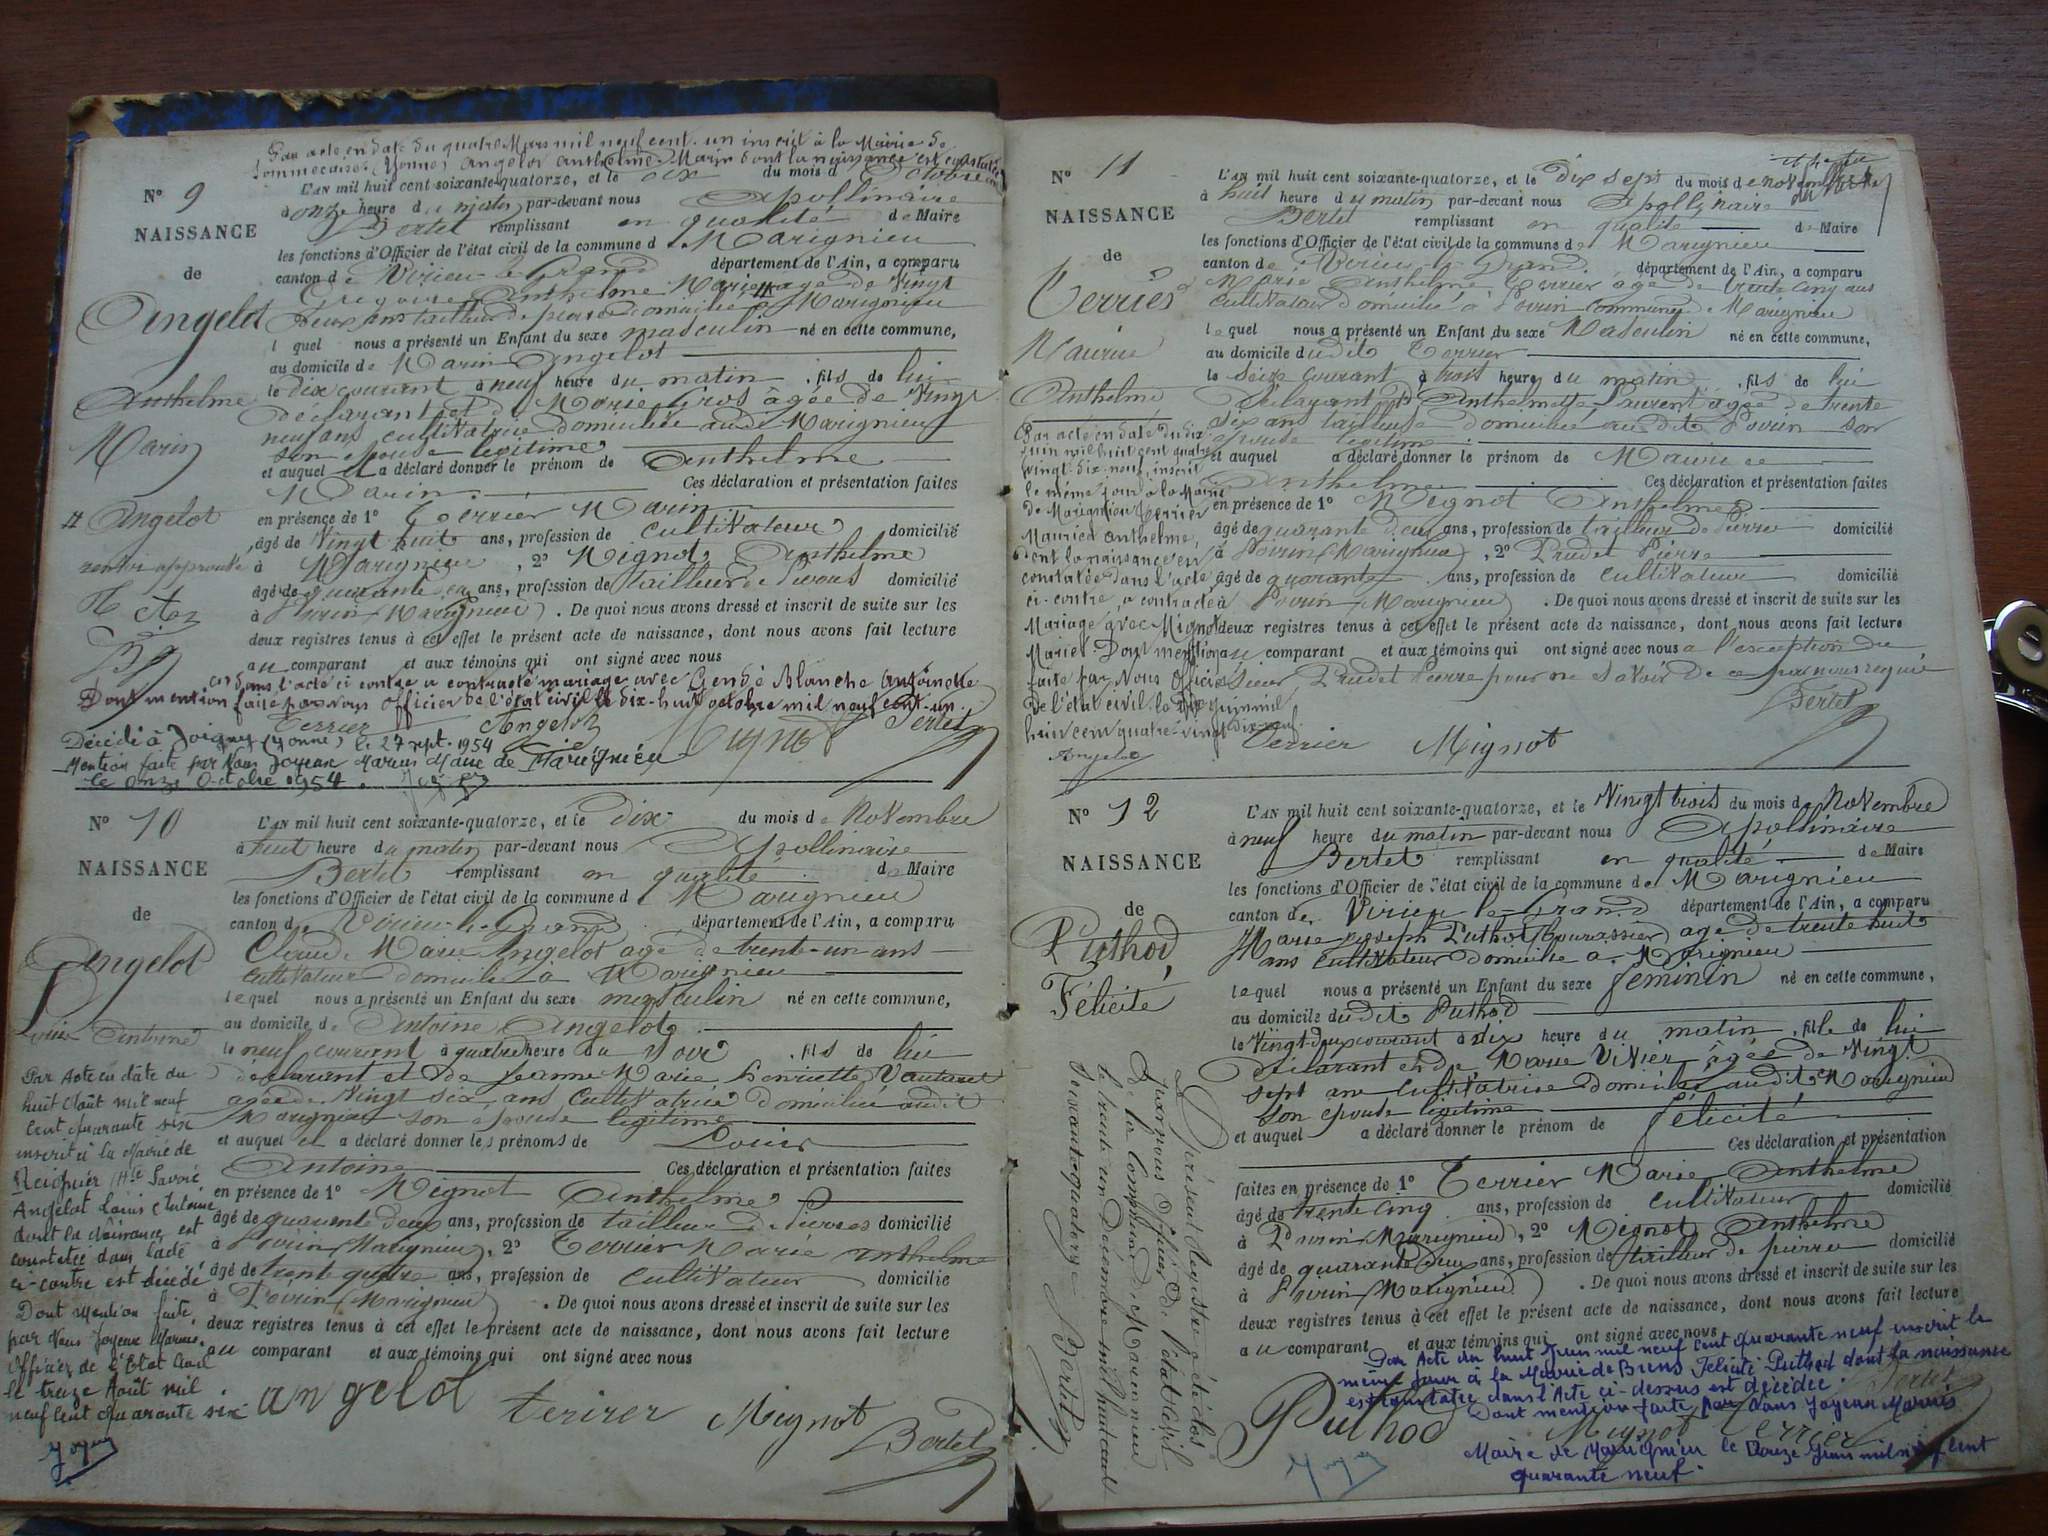 Par acte en date du quatre Mars mil neuf cent un inscrit à la Mairie de
Sommecaise (Yonne) Angelot Anthelme Marin dont la naissance est constatée
N° 9
NAISSANCE
de
Angelot
Anthelme
Marin
# Angelot
renvoi approuvé
L'AN mil huit cent soixante-quatorze, et le dix du mois d'Octobre
à onze heure du matin par-devant nous Apollinaire
Bertet remplissant en qualité de Maire
les fonctions d'Officier de l'état civil de la commune d Marignieu
canton de Virieu-le-Grand département de l'Ain, a comparu
Grégoire Anthelme Marie # agé de Vingt
deux ans tailleur de pierre domicilié à Marignieu
l quel nous a présenté un Enfant du sexe masculin né en cette commune,
au domicile de Marin Angelot
le dix courant à neuf heure du matin, fils de lui
déclarant et de Marie Gros âgée de Vingt
neuf ans cultivatrice domiciliée audit Marignieu
son épouse légitime
et auquel il a déclaré donner le prénom de Anthelme
Marin Ces déclaration et présentation faites
en présence de 1° Terrier Marin
âgé de Vingt huit ans, profession de Cultivateur domicilié
à Marignieu, 2° Mignot Anthelme
âgé de quarante deux ans, profession de tailleur de pierres domicilié
à Poirin (Marignieu). De quoi nous avons dressé et inscrit de suite sur les
deux registres tenus à cet effet le présent acte de naissance, dont nous avons fait lecture
au comparant et aux témoins qui ont signé avec nous
dans l'acte ci contre a contracté mariage avec Gendé Blanche Antoinette
Dont mention faite par nous officier de l'état civil le dix-huit octobre mil neuf cent-un.
Terrier Angelot Mignot Bertet
Décédé à Joigny (Yonne) le 27 sept. 1954
Mention faite par Nous Joyeux Marius Maire de Marignieu
le onze Octobre 1954.
N° 10
NAISSANCE
de
Angelot
Louis Antoine
L'AN mil huit cent soixante-quatorze, et le dix du mois de Novembre
à huit heure du matin par-devant nous Apollinaire
Bertet remplissant en qualité de Maire
les fonctions d'Officier de l'état civil de la commune d Marignieu
canton de Virieu-le-Grand département de l'Ain, a comparu
Claude Marie Angelot agé de trente-un ans
cultivateur domicilié à Marignieu
lequel nous a présenté un Enfant du sexe masculin né en cette commune,
au domicile de Antoine Angelot
le neuf courant à quatre heure du soir, fils de lui
déclarant et de Jeanne Marie henriette Vautaret
agée de Vingt six ans Cultivatrice domiciliée audit
Marignieu son épouse légitime
et auquel il a déclaré donner les prénoms de Louis
Antoine Ces déclaration et présentation faites
en présence de 1° Mignot Anthelme
âgé de quarante deux ans, profession de tailleur de Pierres domicilié
à Poirin (Marignieu), 2° Terrier Marie Anthelme
âgé de trente quatre ans, profession de Cultivateur domicilié
à Poirin (Marignieu). De quoi nous avons dressé et inscrit de suite sur les
deux registres tenus à cet effet le présent acte de naissance, dont nous avons fait lecture
au comparant et aux témoins qui ont signé avec nous
angelot terirer Mignot Bertet
Par Acte en date du
huit Août mil neuf
cent quarante six
inscrit à la Mairie de
Reignier Hte Savoie
Angelot Louis Antoine
dont la naissance est
constatée dans l'acte
ci-contre est décédé
Dont mention faite
par Nous Joyeux Marius
Officier de l'Etat Civil
le treize Août mil
neuf cent quarante six
N° 11
NAISSANCE
de
Terrier
Maurice
Anthelme
L'AN mil huit cent soixante-quatorze, et le dix sept du mois de novembre
à huit heure du matin par-devant nous Apollinaire
Bertet remplissant en qualité de Maire
les fonctions d'Officier de l'état civil de la commune de Marignieu
canton de Virieu-le-Grand département de l'Ain, a comparu
Marie Anthelme Terrier agé de trente cinq ans
cultivateur domicilié à Poirin commune de Marignieu
lequel nous a présenté un Enfant du sexe Masculin né en cette commune,
au domicile dudit Terrier
le seize courant à trois heure du matin, fils de lui
déclarant et d'Anthelmette Laurent agée de trente
six ans tailleuse domiciliée audit Poirin son
épouse légitime
et auquel a déclaré donner le prénom de Maurice
Anthelme Ces déclaration et présentation faites
en présence de 1° Mignot Anthelme
âgé de quarante deux ans, profession de tailleur de Pierre domicilié
à Poirin (Marignieu), 2° Prudet Pierre
âgé de quarante ans, profession de cultivateur domicilié
à Poirin (Marignieu). De quoi nous avons dressé et inscrit de suite sur les
deux registres tenus à cet effet le présent acte de naissance, dont nous avons fait lecture
au comparant et aux témoins qui ont signé avec nous à l'exception du
sieur Prudet Pierre pour ne savoir de ce par nous requis
Bertet
Terrier Mignot
Par acte en date du dix
juin mil huit cent quatre
vingt-dix-neuf, inscrit
le même jour à la Mairie
de Marignieu Terrier
Maurice Anthelme,
dont la naissance est
constatée dans l'acte
ci-contre, a contracté
Mariage avec Mignot
Marie. Dont mention
faite par Nous Officier
de l'état civil le dix juin mil
huit cent quatre-vingt-dix-neuf.
Angelot
N° 12
NAISSANCE
de
Puthod
Félicité
L'AN mil huit cent soixante-quatorze, et le Vingt trois du mois de Novembre
à neuf heure du matin par-devant nous Apollinaire
Bertet remplissant en qualité de Maire
les fonctions d'Officier de l'état civil de la commune de Marignieu
canton de Virieu-le-Grand département de l'Ain, a comparu
Marie Joseph Puthod agé de trente huit
ans Cultivateur domicilié à Marignieu
lequel nous a présenté un Enfant du sexe féminin né en cette commune,
au domicile dudit Puthod
le Vingt-deux courant à dix heure du matin, fille de lui
déclarant et de Marie Vivier âgée de Vingt
sept ans Cultivatrice domiciliée audit Marignieu
son épouse légitime
et auquel a déclaré donner le prénom de félicité
Ces déclaration et présentation
faites en présence de 1° Terrier Marie Anthelme
âgé de trente cinq ans, profession de Cultivateur domicilié
à Poirin (Marignieu), 2° Mignot Anthelme
âgé de quarante deux ans, profession de tailleur de pierre domicilié
à Poirin (Marignieu). De quoi nous avons dressé et inscrit de suite sur les
deux registres tenus à cet effet le présent acte de naissance, dont nous avons fait lecture
au comparant et aux témoins qui ont signé avec nous
Par Acte du huit Juin mil neuf cent quarante neuf inscrit le
même jour à la Mairie de Brens Félicité Puthod dont la naissance
est constatée dans l'Acte ci-dessus est décédée.
Dont mention faite par Nous Joyeux Marius
Maire de Marignieu le Douze Juin mil neuf cent
quarante neuf.
Puthod Mignot Terrier Bertet
Le présent Registre a été clos
par nous Officier de l'état civil
de la Commune de Marignieu
le trente un Décembre mil huit cent
soixante quatorze
Bertet